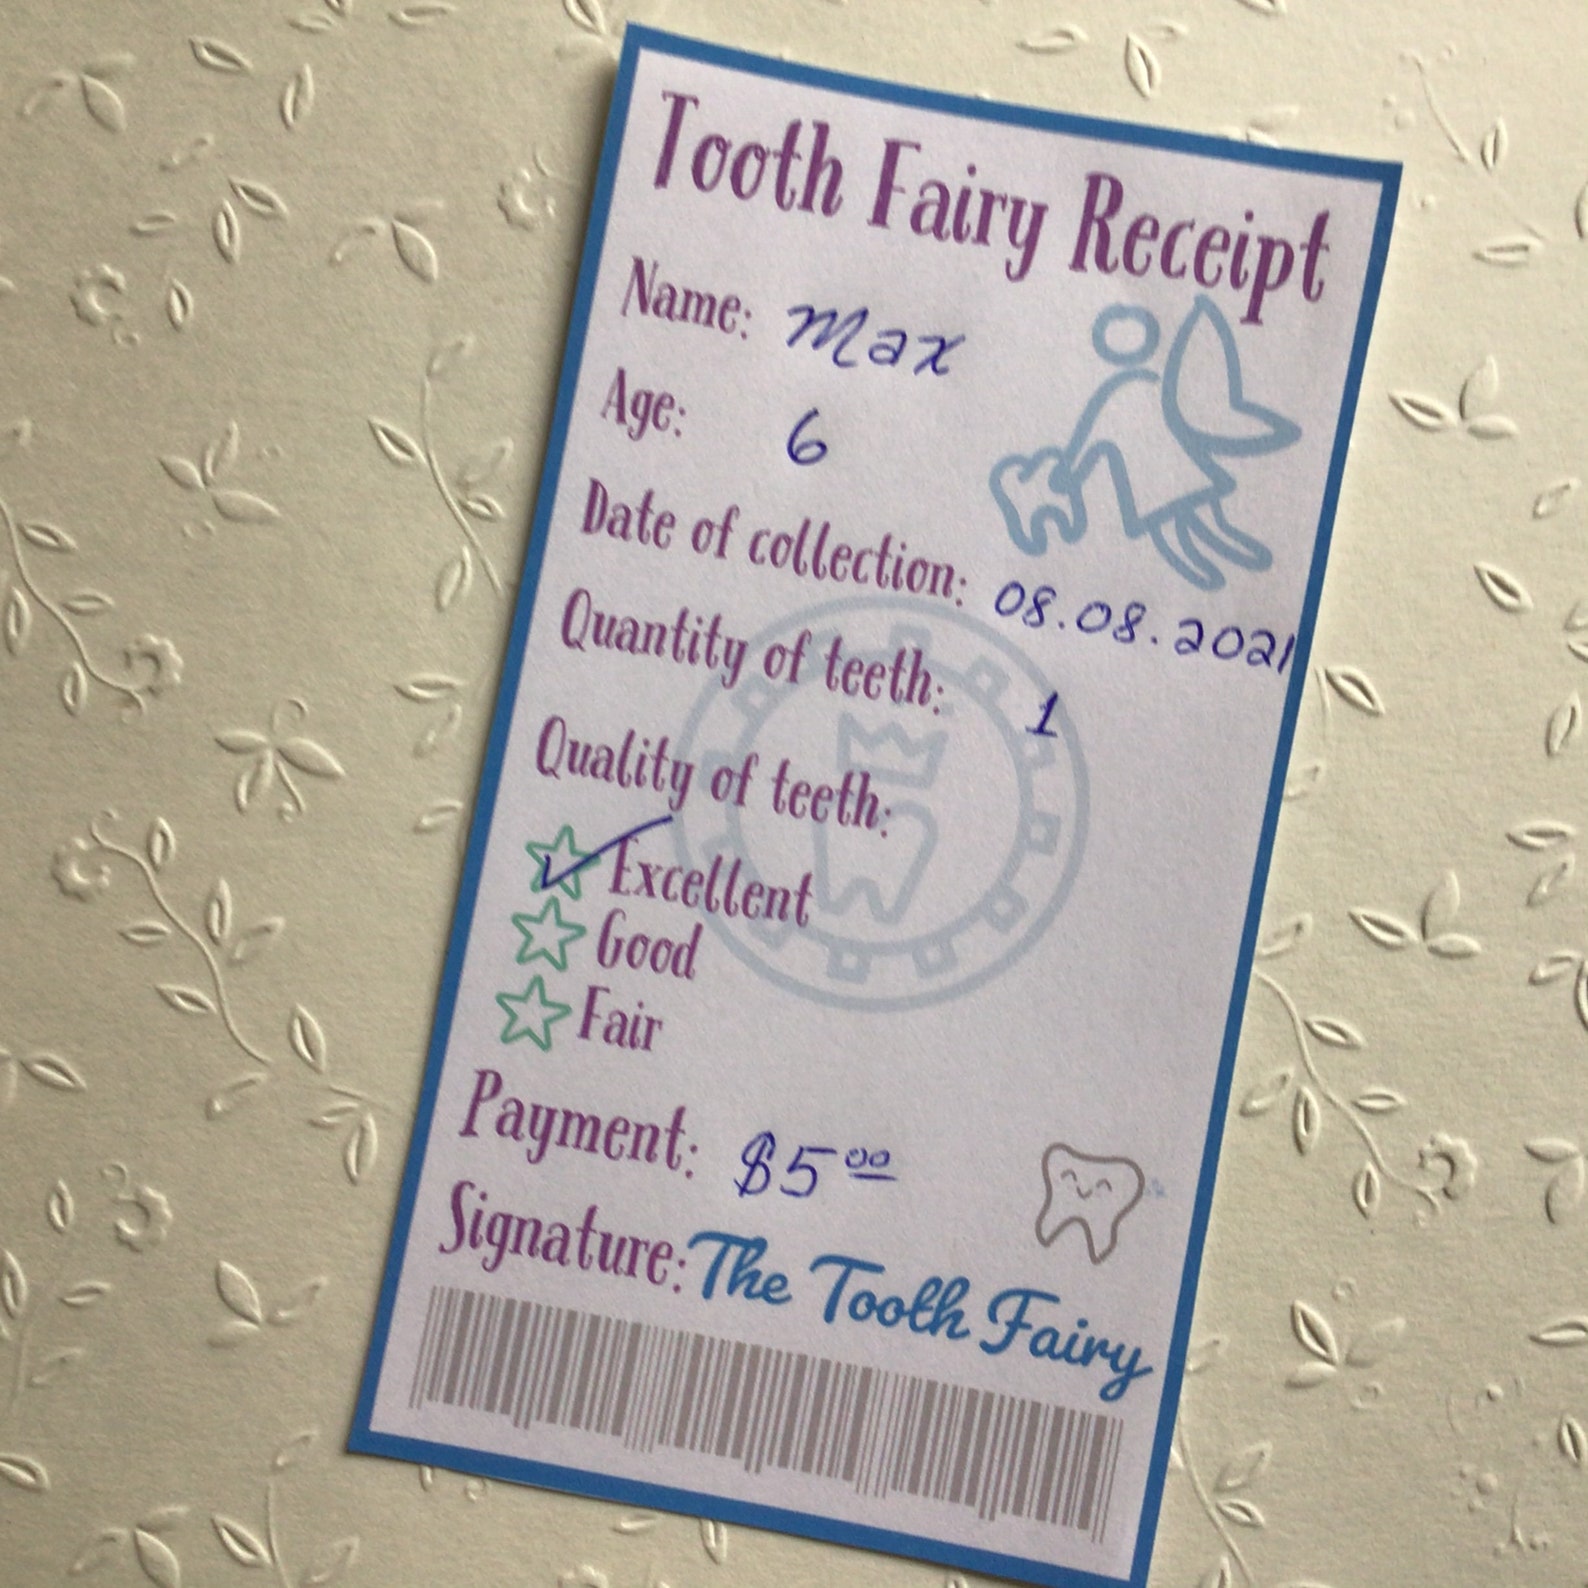 Tooth Fairy Receipt
Name: Max
Age: 6
Date of collection: 08.08.2021
Quantity of teeth: 1
Quality of teeth:
Excellent
Good
Fair
Payment: $5.00
Signature: The Tooth Fairy